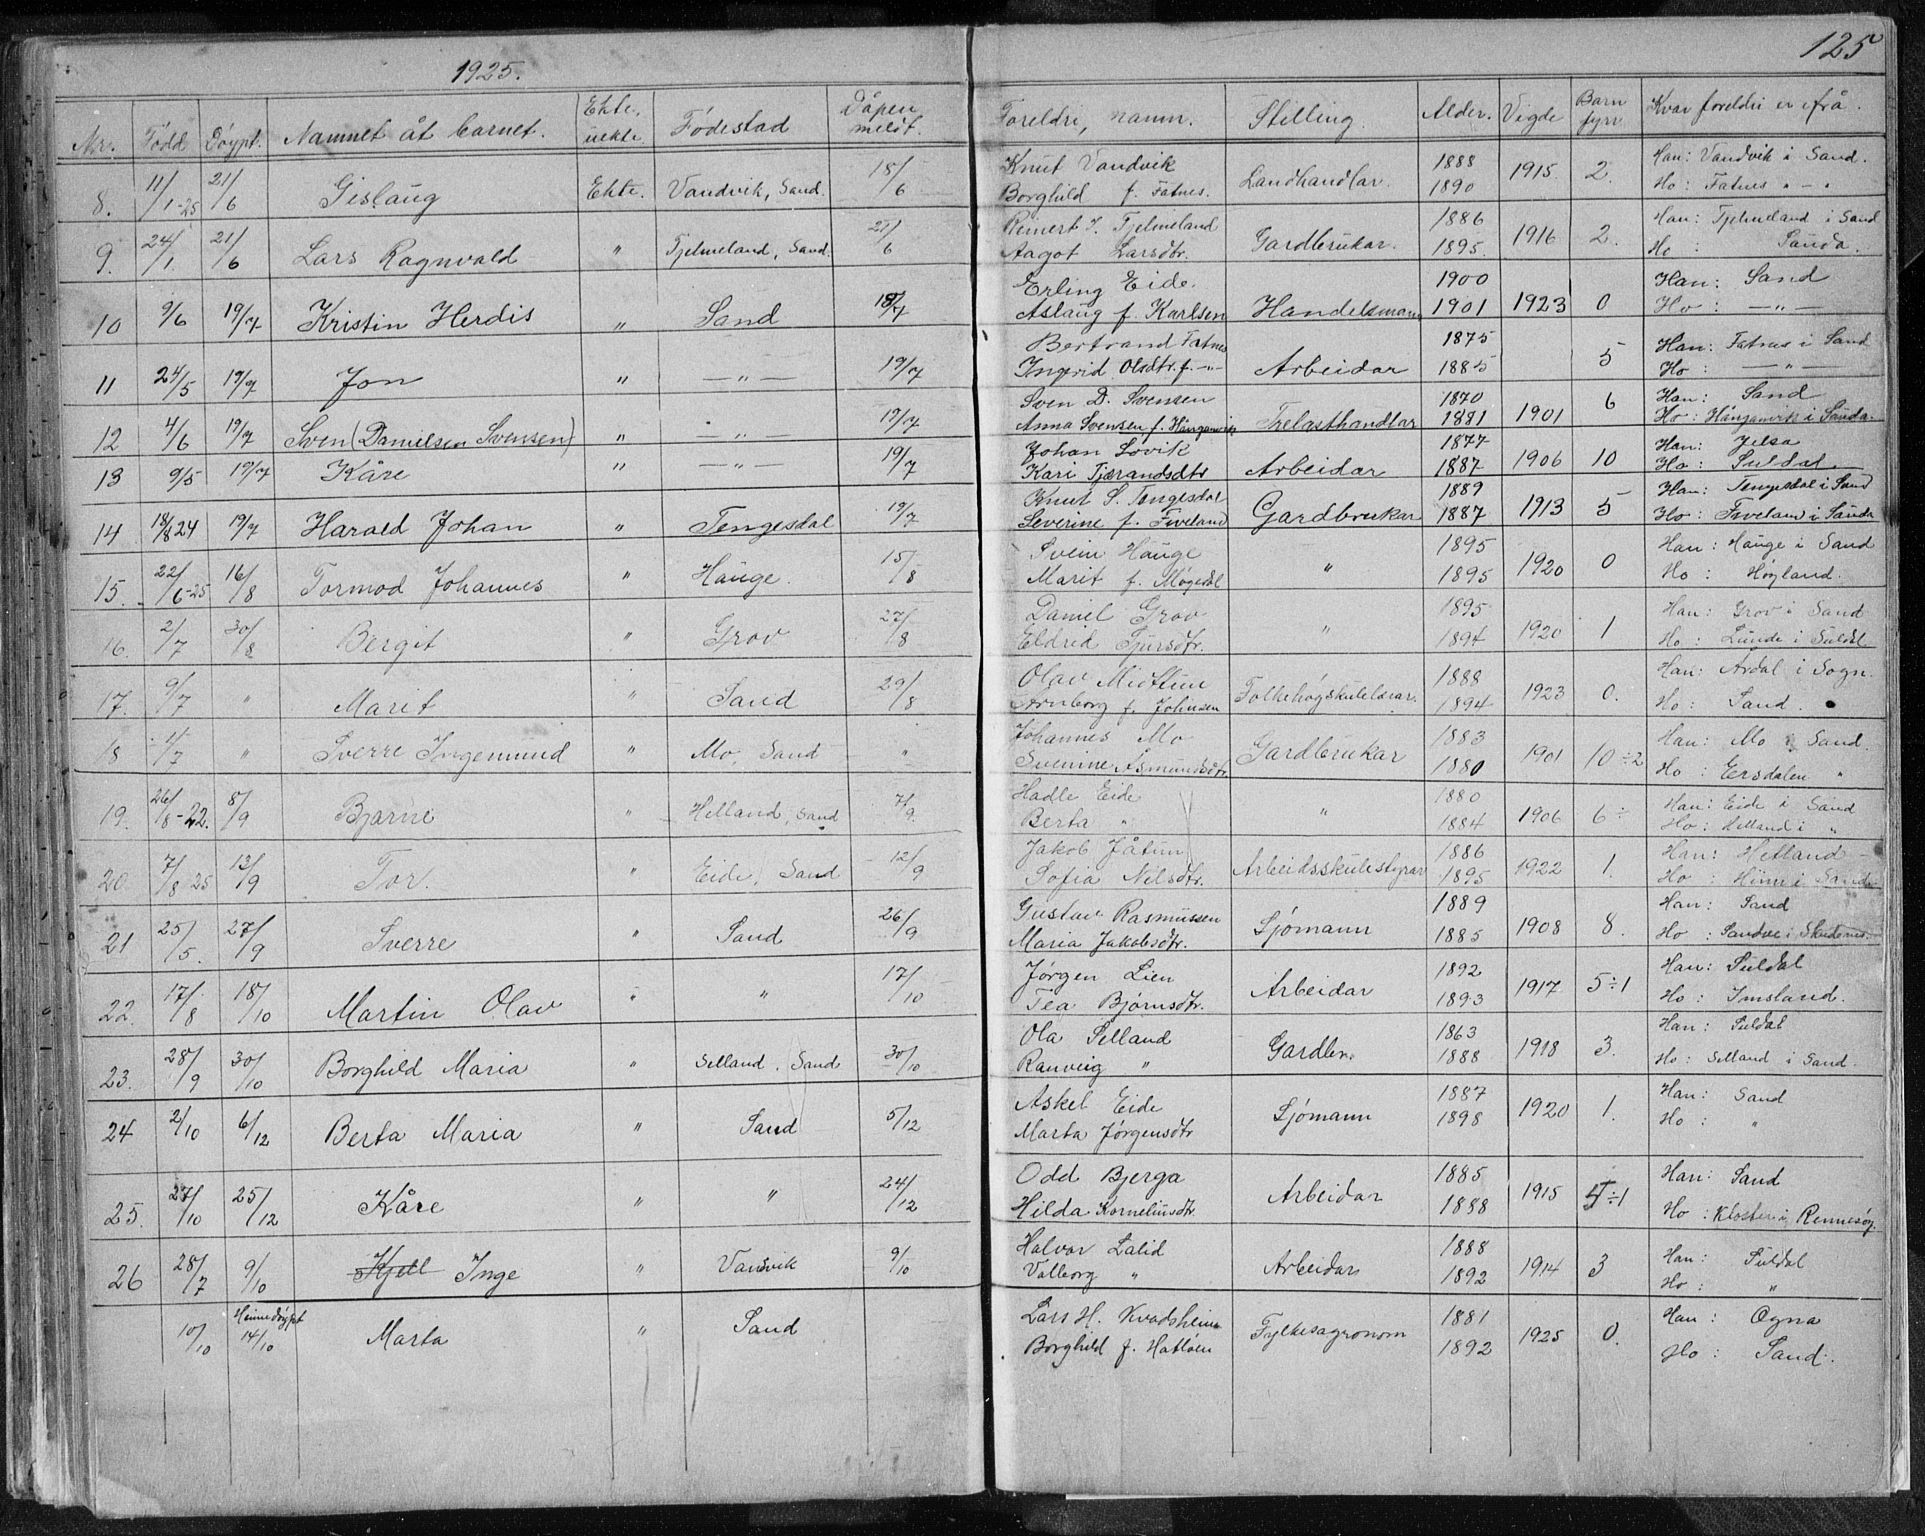 1925.
125
Nr. Född Döypt. Namnet åt barnet. Ekte, uekte Födestad Dåpen meldt. Foreldri, namn. Stilling. Alder. Vigde Barn fyrr Kvar foreldri er ifrå.
8. 11/1-25 21/6 Gislaug Ekte. Vandvik, Sand. 18/6 Knut Vandvik Landhandlar. 1888 1915. 2. Han: Vandvik i Sand.
Borghild f. Fatnes. 1890 Ho: Fatnes " - "
9. 24/1. 21/6 Lars Ragnvald " Tjelmeland, Sand. 21/6 Reinert T. Tjelmeland Gardbrukar. 1886 1916 2. Han: Tjelmeland i Sand
Aagot Larsdtr. 1895. Ho : Sauda.
10 9/6 19/7 Kristin Herdis " Sand 18/7 Erling Eide. Handelsmann 1900 1923 0 Han: Sand
Aslaug f. Karlsen 1901 Ho : —"—
11 24/5 19/7 Jon " —"— 19/7 Bertrand Fatnes Arbeidar 1875 5 Han: Fatnes i Sand
Ingerid Olsdtr. f. -"- 1885 Ho : —"—
12 4/6 19/7 Sven (Danielsen Svensen) " " 19/7 Sven D. Svensen Trelasthandlar 1870 1901 6 Han: Sand
Anna Svensen f. 1881 Ho: i Sauda.
13 9/5 19/7 Kåre " —"— 19/7 Johan Lovik Arbeidar 1877 1906 10 Han: Jelsa
Kari Tjærandsdtr 1887 Ho : Suldal
14 18/8 24 19/7 Harald Johan " Tengesdal 19/7 Knut S. Tengesdal Gardbrukar 1889 1913 5 Han: Tengesdal i Sand
Severine f. Fiveland 1887 Ho: Fiveland i Sauda
15. 22/6-25 16/8 Tormod Johannes " Hauge. 15/8 Svein Hauge " 1895 1920 0 Han: Hauge i Sand
Marit f. Møgedal 1895 Ho : Høgland.
16. 2/7 30/8 Bergit " Grov 27/8 Daniel Grov " 1895 1920 1 Han: Grov i Sand
Eldrid Sjursdtr. 1894 Ho: Lunde i Suldal
17. 9/7 " Marit " Sand 29/8 Olav Midttun Folkehøgskulelærar. 1888 1923 0. Han: Årdal i Sogn.
Arnborg f. Johnsen 1894 Ho: Sand.
18 /7 " Sverre Ingemund " Mo, Sand " Johannes Mo Gardbrukar 1883 1901 10÷2 Han: Mo i Sand.
Svenine Åsmundsdtr. 1880 Ho: Ersdalen "
19. 26/8-22. 8/9 Bjarne " Helland, Sand 7/9. Hadle Eide " 1880 1906 6÷ Han: Eide i Sand
Berta " 1884 Ho: Helland i "
20. 7/8 25 13/9 Tor. " Eide, Sand 12/9 Jakob Jåtun Arbeidsskulestyrar 1886 1922 1. Han: Hetland
Sofia Nilsdtr. 1895 Ho : i Sand
21 25/5. 27/9 Sverre " Sand 26/9 Gustav Rasmussen Sjømann 1889 1908 8. Han: Sand
Maria Jakobsdtr. 1885 Ho : Sandve i Skudenes
22. 17/8 18/10 Martin Olav " " 17/10 Jørgen Lien Arbeidar 1892 1917 5÷1 Han: Suldal
Tea Bjørnsdtr. 1893 Ho: Imsland.
23. 28/9 30/10 Borghild Maria " Selland, Sand 30/10 Ola Selland Gardbr. 1863 1918 3. Han: Suldal
Ranveig " 1888 Ho: Selland i Sand.
24 2/10 6/12 Berta Maria " Sand 5/12 Askel Eide Sjømann 1887 1920 1. Han: Sand
Marta Jørgensdtr 1898 Ho : "
25. 27/10 25/12 Kåre " " 24/12 Odd Bjerga Arbeidar 1885 1915 5÷1 Han: Sand
Hilda Korneliusdtr. 1888 Ho : Kloster i Rennesøy.
26 28/7 9/10 Kjell Inge " Vandvik 9/10 Halvor Lalid Arbeidar 1888 1914 3 Han: Suldal
Valborg " 1892 Ho: "
10/10 Heimedöypt 14/10 Marta " Sand Lars H. Kvadsheim Fylkesagronom 1881 1925 0. Han: Ogna
Borghild f. Hatløen 1892 Ho : Sand.